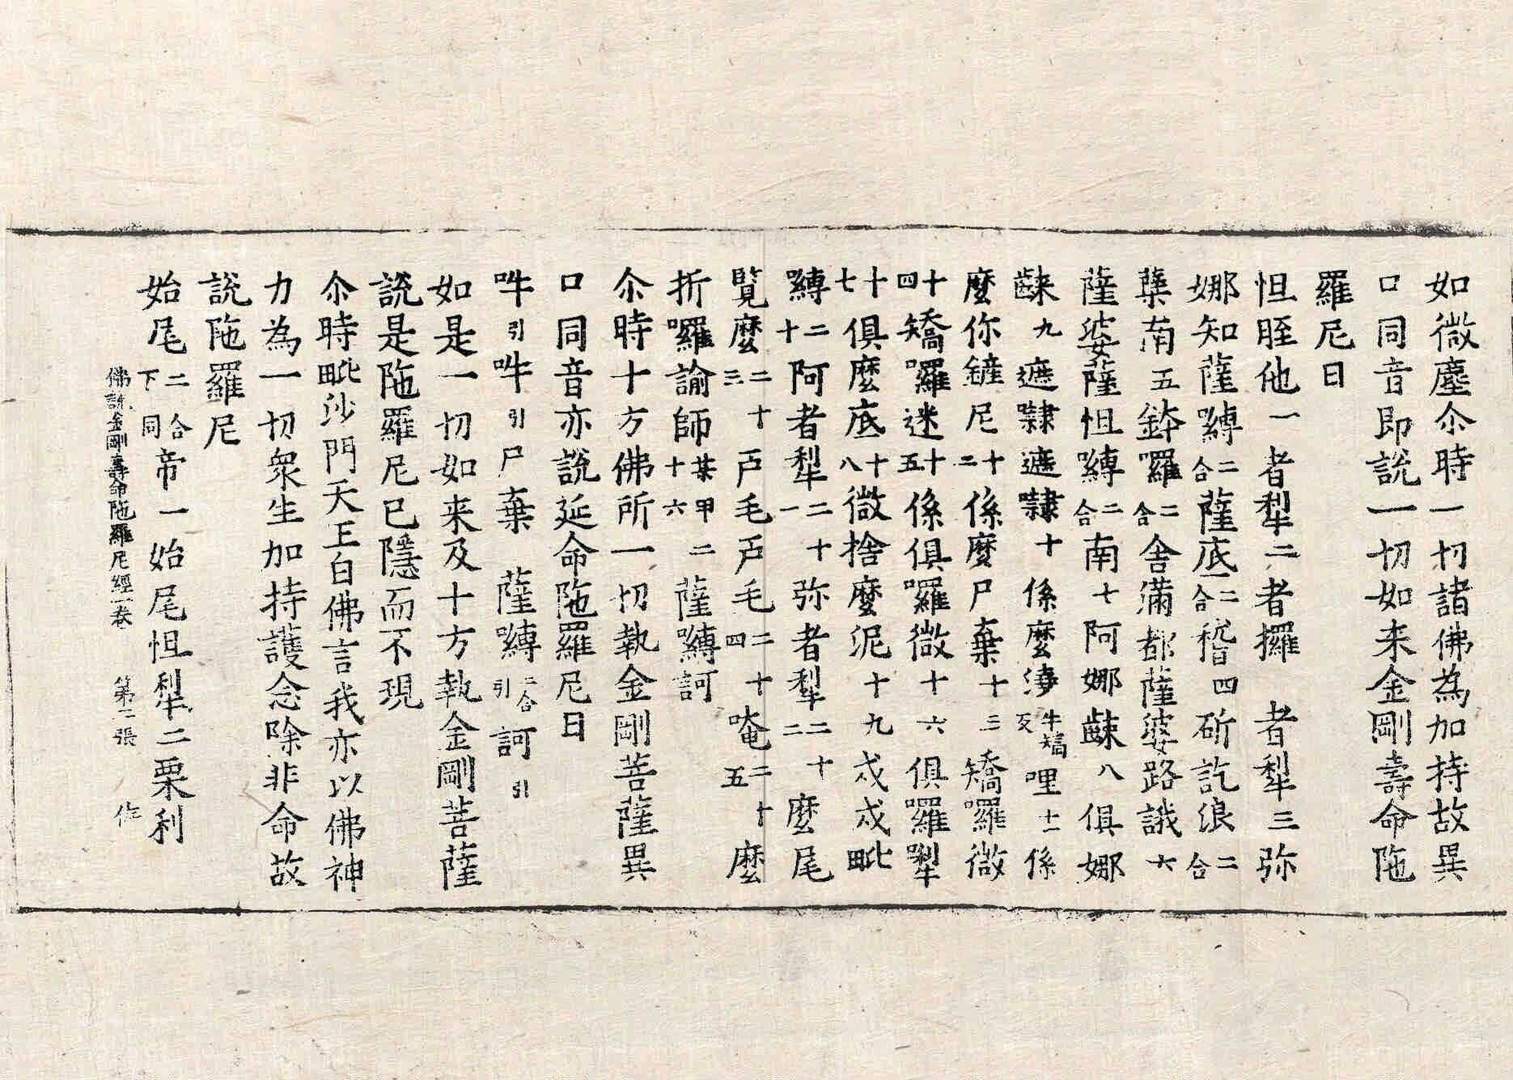 如微塵尒時一切諸佛為加持故異
口同音即說一切如来金剛壽命陁
羅尼曰
怛胵他一者犁二者攞 者犁三弥
娜知薩嚩二合薩底二合䅲四斫訖浪二合
蘖南五鉢囉二合舍滿都薩婆路誐六
薩婆薩怛嚩二合南七阿娜䶫八俱娜
䶫九遮隷遮隷十係麼 哩十一係
麼你鏟尼十二係麼尸棄十三矯囉微
十四矯囉迷十五係俱囉微十六俱囉犁
十七俱麼底十八微捨麼泥十九戍戍毗
嚩二十阿者犁二十一弥者犁二十二麼尾
覧麼二十三戶毛戶毛二十四唵二十五麼
折囉諭師葉甲二十六薩嚩訶
尒時十方佛所一切執金剛菩薩異
口同音亦說延命陁羅尼曰
吽引吽引尸棄 薩嚩二合引訶引
如是一切如来及十方執金剛菩薩
說是陁羅尼已隱而不現
尒時毗沙門天王白佛言我亦以佛神
力為一切衆生加持護念除非命故
說陁羅尼
始尾二合下同帝一始尾怛犁二栗利
佛說金剛壽命陁羅尼經一卷 第二張 作